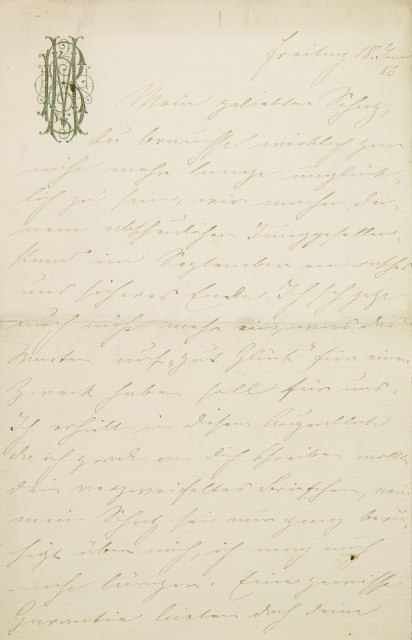 Freitag 18. Juni
86
Mein geliebter Schatz,
du brauchst wirklich gar
nicht mehr lange unglück-
lich zu sein, wir machen dei-
nem abscheulichen Junggesellen-
stand im September ein rasches
und sicheres Ende. Ich seh jetzt
auch nicht mehr ein, was das
Warten auf "gut Glück" für einen
Zweck haben soll für uns.
Ich erhielt in diesem Augenblick
da ich grade an dich schreiben wollte
dein verzweifeltes Briefchen, nein
mein Schatz sei nur ganz beru-
higt über mich, ich mag auch
nicht länger. Eine gewisse
Garantie bieten doch deine